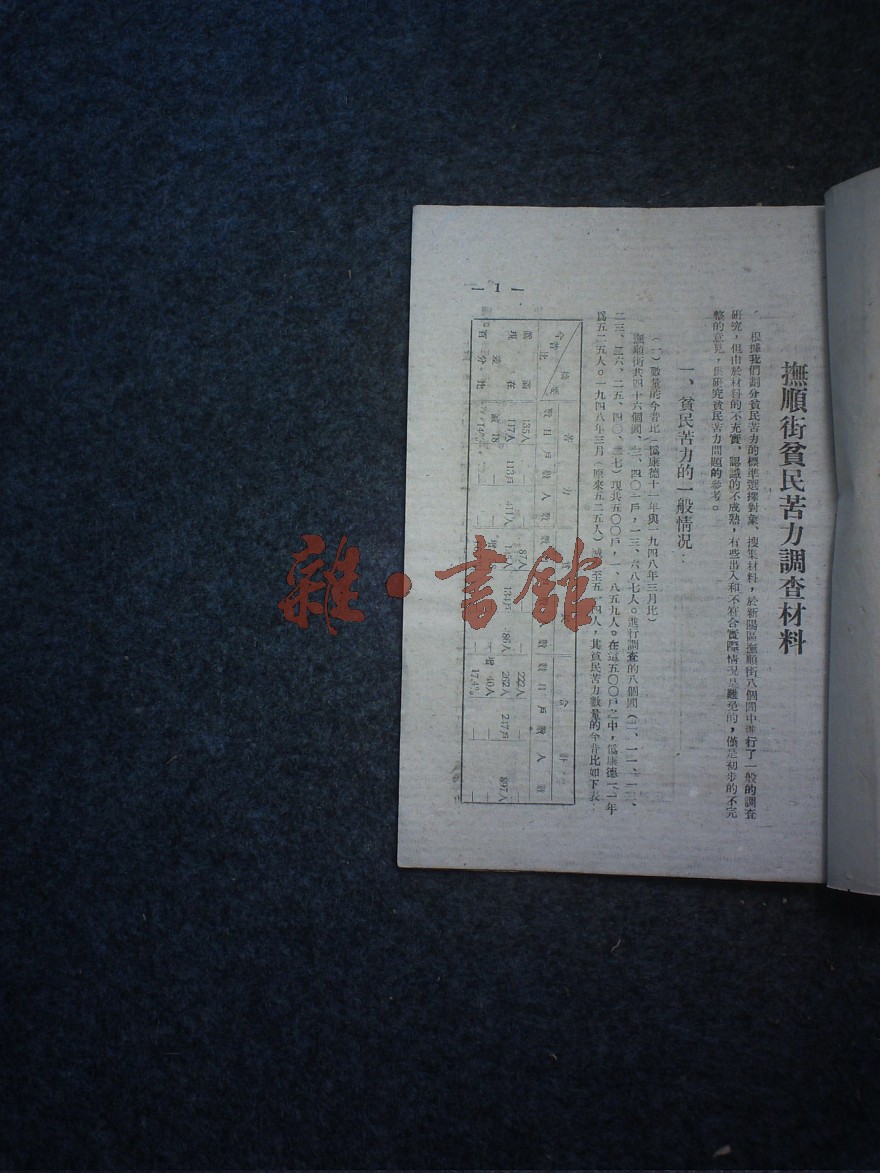 撫順街貧民苦力調查材料
根據我們劃分貧民苦力的標準選擇對象、搜集材料，於新陽區撫順街八個閭中進行了一般的調查
研究，但由於材料的不充實、認識的不成熟，有些出入和不符合實際情况是難免的，僅是初步的不完
整的意見，供研究貧民苦力問題的參考。
一、貧民苦力的一般情况：
（一）數量的今昔比（僞康德十一年與一九四八年三月比）
撫順街共四十六個閭、三、四〇一戶，一三、六八七人。進行調查的八個閭（二、一一、
二三、二六、二五、四〇、七）現共五〇〇戶，一、八五九人。在這五〇〇戶之中，僞康德十一年
爲五二五人。一九四八年三月（原來五二五人）減至五一四人，其貧民苦力數量的今昔比如下表：
今昔比
苦 力
合 計
數目 戶數 人數
135人
87人
222人
現在
117人 113戶 411人
145人 134戶 486人
262人 247戶 897人
減 18
增 40人
百分比
14%
17.4%
— 1 —
雜·書館